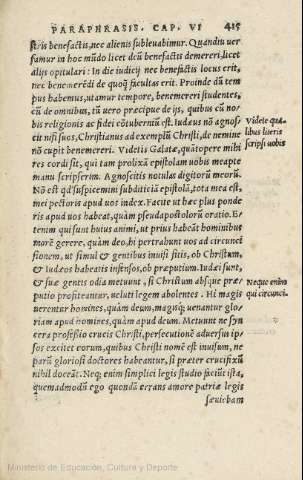 PARAPHRASIS. CAP. VI 415
stris benefactis, nec alienis subleuabimur. Quandiu uer
samur in hoc mūdo licet deū benefactis demereri, licet
alijs opitulari: In die iudicij nec benefictis locus erit,
nec benemerēdi de quoq̃ facultas erit. Proinde dū tem
pus habemus, utamur tempore, benemereri studentes,
cū de omnibus, tū uero præcipue de ijs, quibus cū no-
bis religionis ac fidei cōtubernū est. Iudæus nō agno-
scit nisi suos, Christianus ad exemplū Christi, de nemine
nō cupit benemereri. Videtis Galatæ, quātopere mihi
res cordi sit, qui tam prolixā epistolam uobis meapte
manu scripserim. Agnoscitis notulas digitorū meorū.
Nō est qd' suspicemini subditiciā epistolā, tota mea est,
mei pectoris apud uos index. Facite ut hæc plus ponde
ris apud uos habeat, quàm pseudapostolorū oratio. E-
tenim qui sunt huius animi, ut prius habeāt hominibus
morē gerere, quàm deo, hi pertrahunt uos ad circunci
sionem, ut simul & gentibus inuisi sitis, ob Christum,
& Iudæos habeatis infensos, ob præputium. Iudæi sunt,
& suæ gentis odia metuunt, si Christum absque præ-
putio profiteantur, ueluti legem abolentes. Hi magis
uerentur homines, quàm deum, magnq́; uenantur glo-
riam apud homines, quàm apud deum. Metuunt ne syn
cera professio crucis Christi, persecutionē aduersus ip-
sos excitet eorum, quibus Christi nomē est inuisum, ne
parū gloriosi doctores habeantur, si præter crucifixū
nihil doceāt. Neq; enim simplici legis studio faciūt ista,
quemadmodū ego quondā errans amore patriæ legis
sæuiebam
Videte qua
libus literis
scripsi uobis
Neque enim
qui circunci.
Ministerio de Educación, Cultura y Deporte